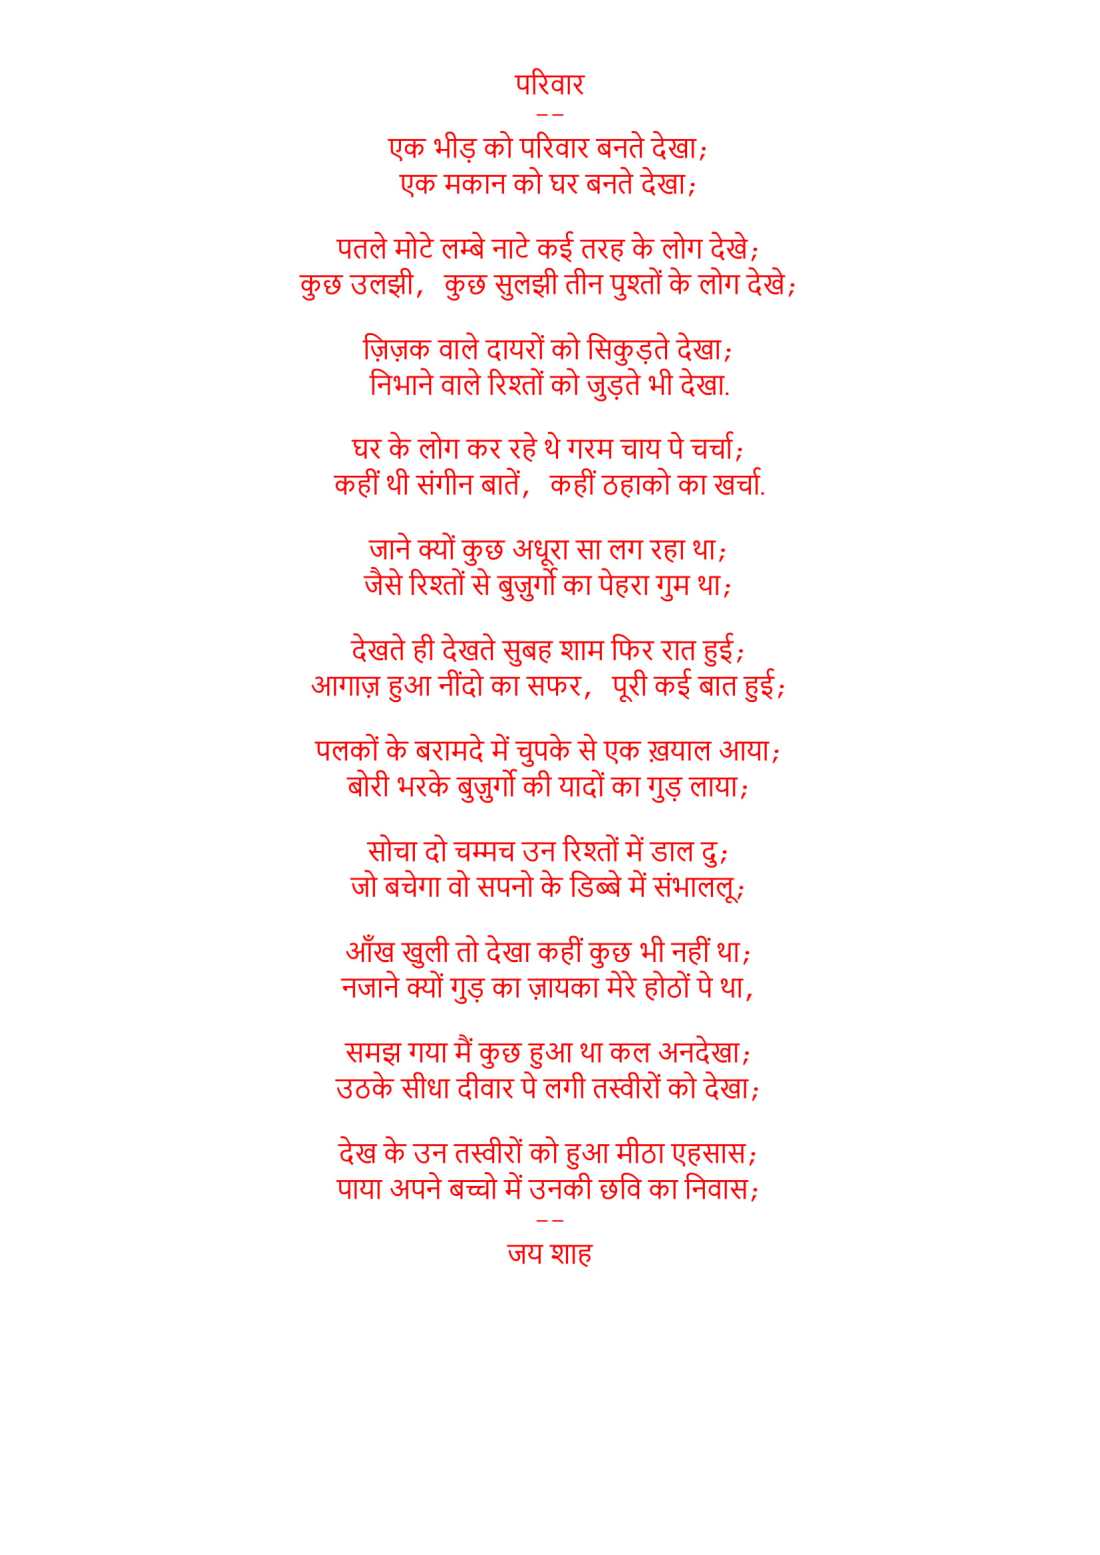 परिवार
--
एक भीड़ को परिवार बनते देखा;
एक मकान को घर बनते देखा;
पतले मोटे लम्बे नाटे कई तरह के लोग देखे;
कुछ उलझी, कुछ सुलझी तीन पुश्तों के लोग देखे;
ज़िज़क वाले दायरों को सिकुड़ते देखा;
निभाने वाले रिश्तों को जुड़ते भी देखा.
घर के लोग कर रहे थे गरम चाय पे चर्चा;
कहीं थी संगीन बातें, कहीं ठहाको का खर्चा.
जाने क्यों कुछ अधूरा सा लग रहा था;
जैसे रिश्तों से बुज़ुर्गो का पेहरा गुम था;
देखते ही देखते सुबह शाम फिर रात हुई;
आगाज़ हुआ नींदो का सफर, पूरी कई बात हुई;
पलकों के बरामदे में चुपके से एक ख़याल आया;
बोरी भरके बुज़ुर्गो की यादों का गुड़ लाया;
सोचा दो चम्मच उन रिश्तों में डाल दु;
जो बचेगा वो सपनो के डिब्बे में संभाललू;
आँख खुली तो देखा कहीं कुछ भी नहीं था;
नजाने क्यों गुड़ का ज़ायका मेरे होठों पे था,
समझ गया मैं कुछ हुआ था कल अनदेखा;
उठके सीधा दीवार पे लगी तस्वीरों को देखा;
देख के उन तस्वीरों को हुआ मीठा एहसास;
पाया अपने बच्चो में उनकी छवि का निवास;
--
जय शाह